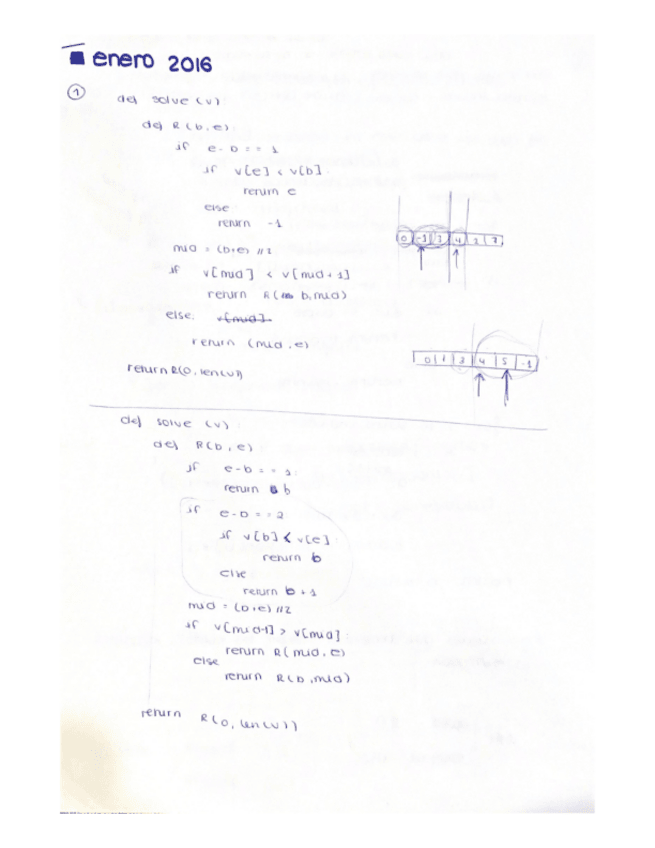 enero 2016
1
def solve (v)
def R (b, e)
if e - b == 1
if v[e] < v[b]
return e
else
return -1
mid = (b+e) //2
if v[mid] < v[mid+1]
return R( b, mid)
else:
return (mid, e)
return R(0, len(v))
0 -1 3 4 2 7
0 1 3 4 5 -1
def solve (v)
def R(b, e)
if e-b == 1:
return b
if e-b == 2
if v[b] < v[e]
return b
else
return b+1
mid = (b+e) //2
if v[mid-1] > v[mid]
return R( mid, e)
else
return R(b, mid)
return R(0, len(v))